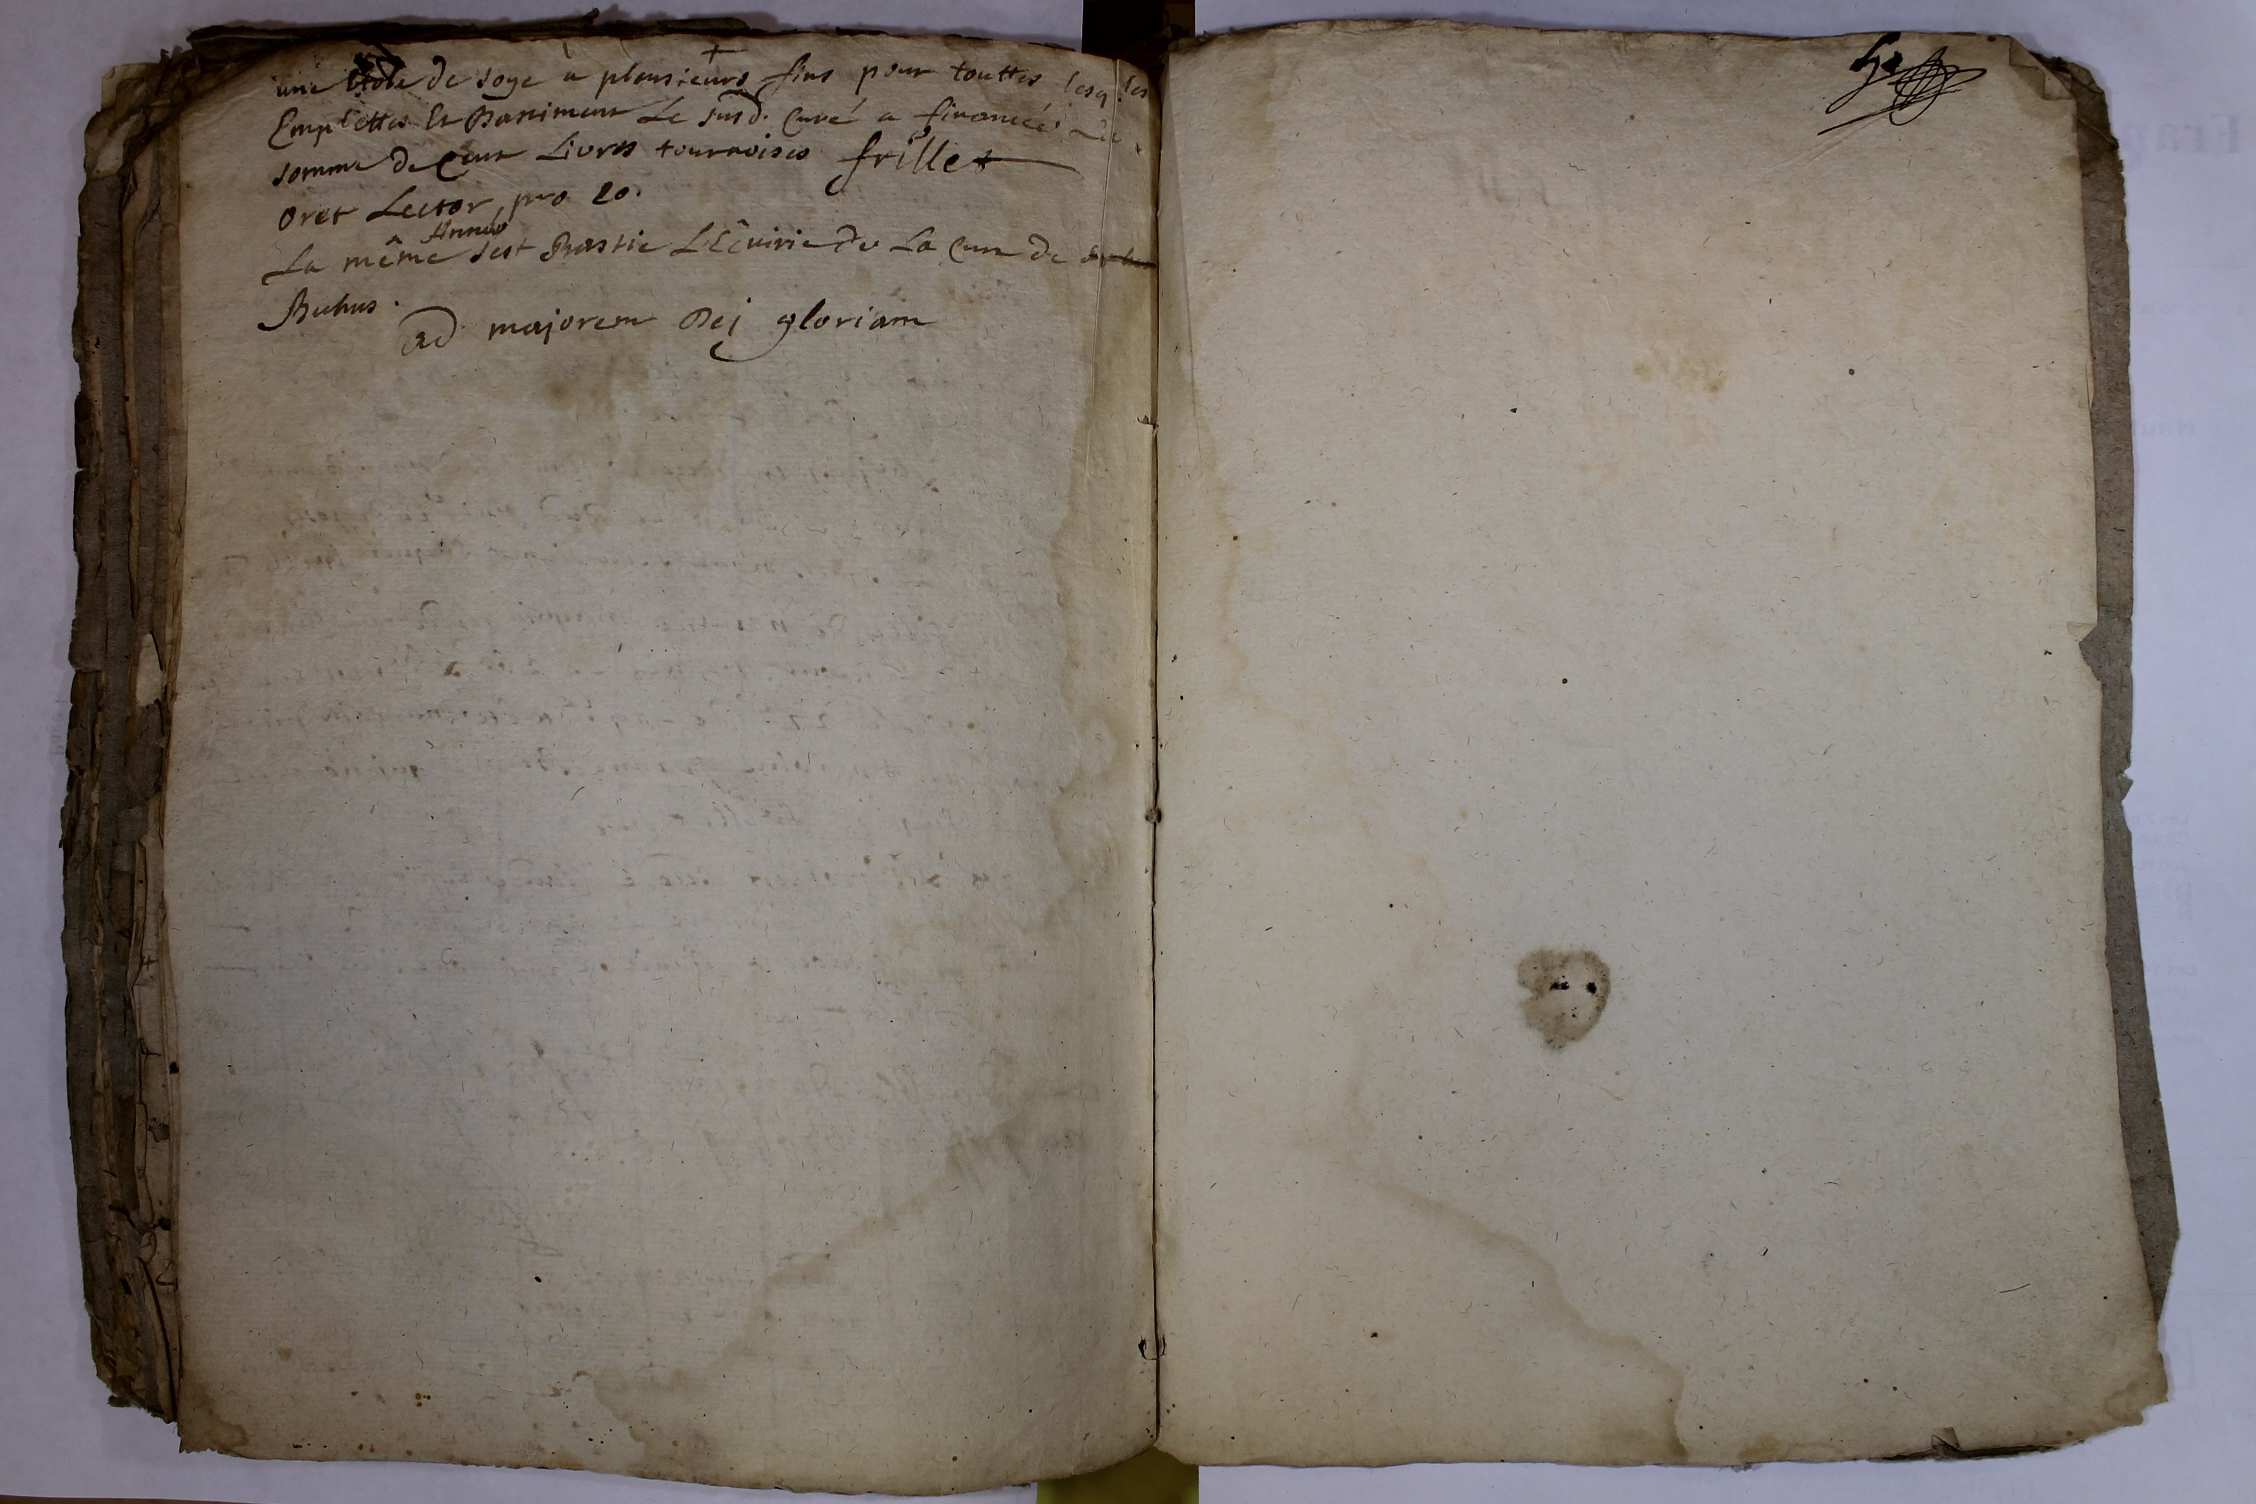 une étole de soye a plousieurs fins pour touttes lesq.les
Emplettes Et Bastiment Le susd. Curé a financéé La
somme de Cent Livres tournoises frillet
Oret Lector pro eo.
La même Année sest Bastie L'Ecuirie de La Cure de
Buhus.
ad majorem Dej gloriam